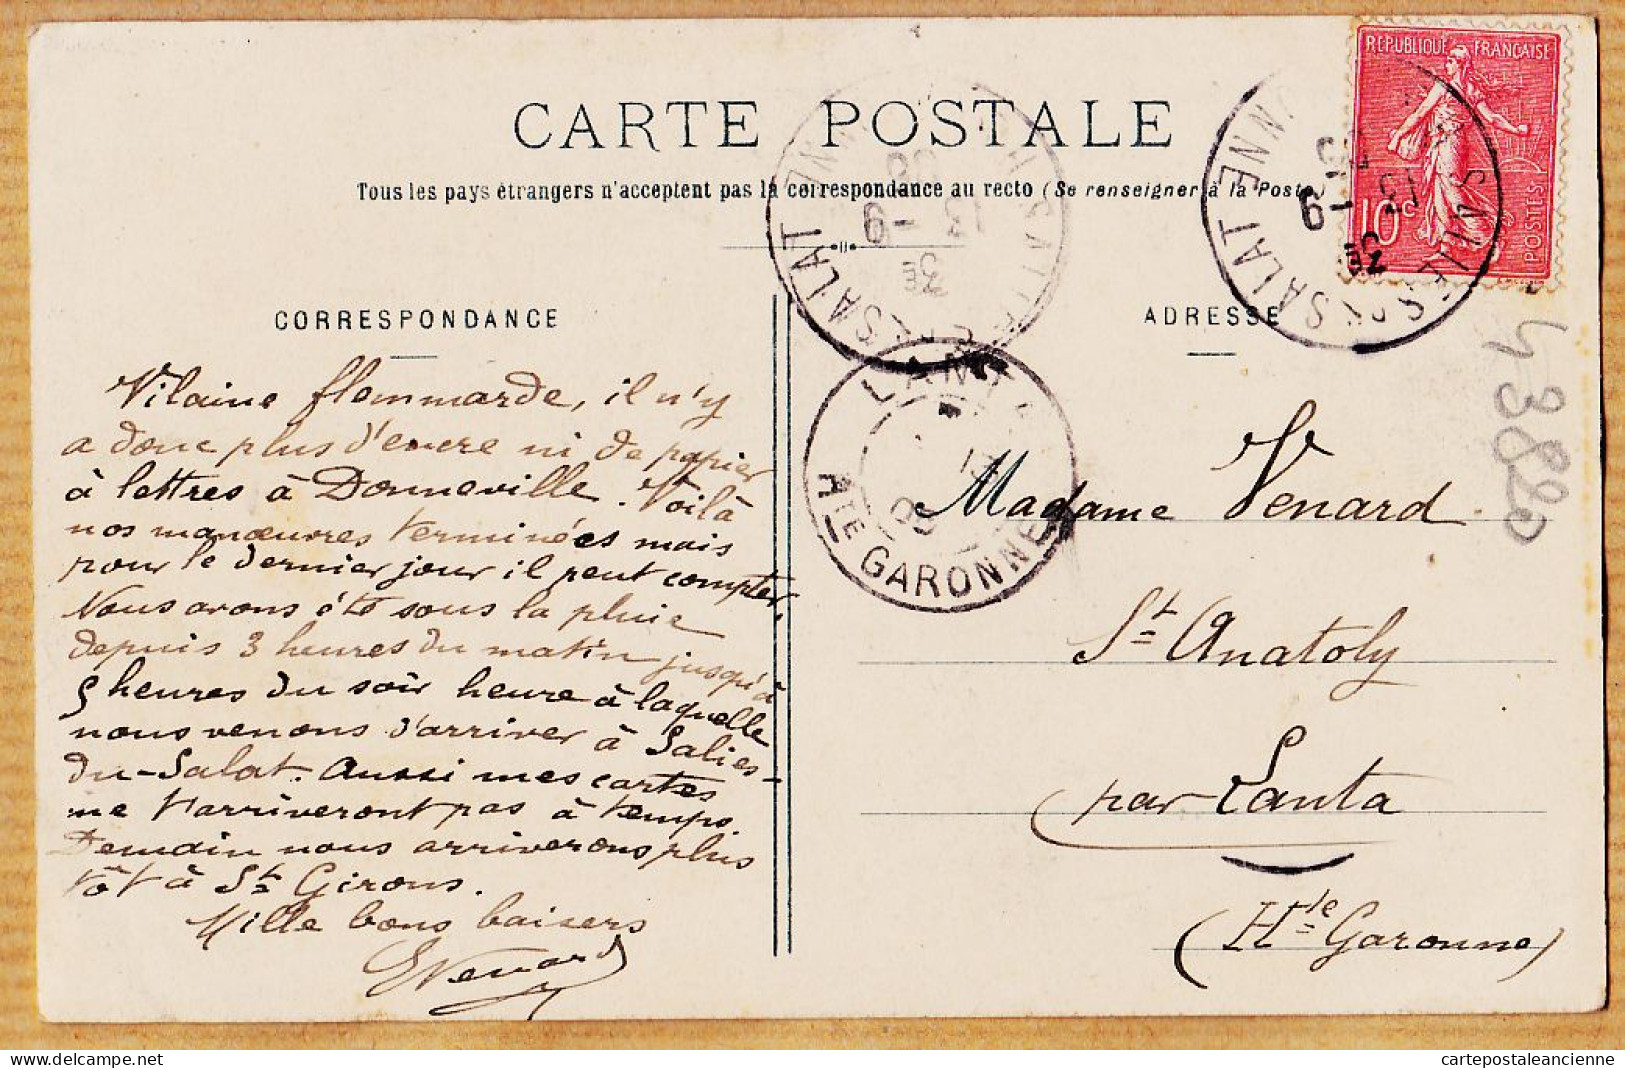 RÉPUBLIQUE FRANÇAISE
10c
POSTES
CARTE POSTALE
Tous les pays étrangers n'acceptent pas la correspondance au recto (Se renseigner à la Poste)
SALIES DU SALAT
13 - 9
3E
SALIES DU SALAT
13 - 9
3E
CORRESPONDANCE
ADRESSE
Vilaine flemmarde, il n'y
a donc plus d'encre ni de papier
à lettres à Donneville. Voilà
nos manœuvres terminées mais
pour le dernier jour il peut compter.
Nous avons été sous la pluie
depuis 3 heures du matin jusqu'à
5 heures du soir heure à laquelle
nous venons d'arriver à Salies-
du-Salat. Aussi mes cartes
ne t'arriveront pas à temps.
Demain nous arriverons plus
tôt à St Girons.
Mille bons baisers
EVenard
LANTA
13
09
HTE GARONNE
Madame Venard
St Anatoly
par Lanta
(Hte Garonne)
43820
cartepostaleancienne